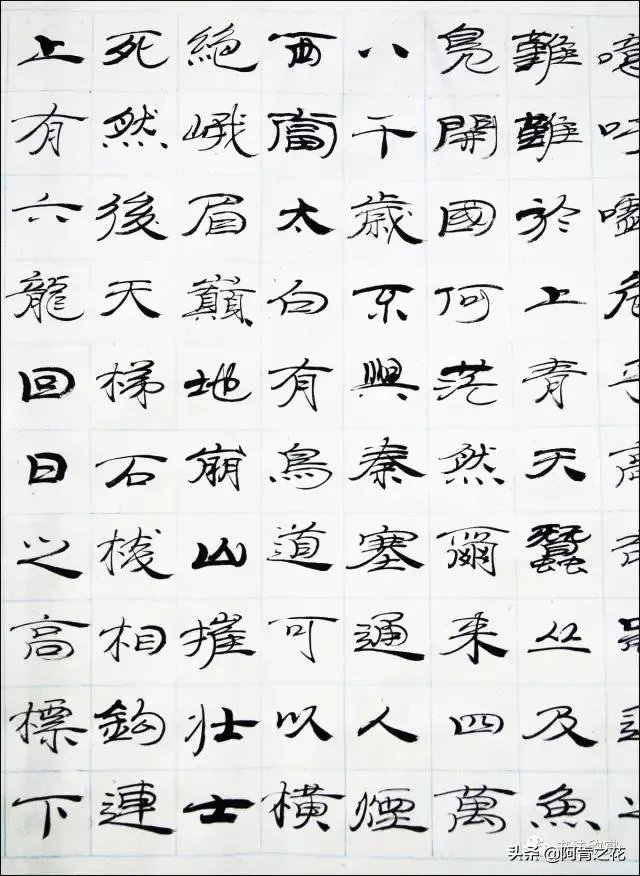 噫吁嚱危乎高
難難於上青天蠶丛及魚
鳧開國何茫然爾来四萬
八千歲不與秦塞通人煙
西當太白有鳥道可以橫
絕峨眉巔地崩山摧壯士
死然後天梯石棧相鉤連
上有六龍回日之高標下
头条 @阿青之花